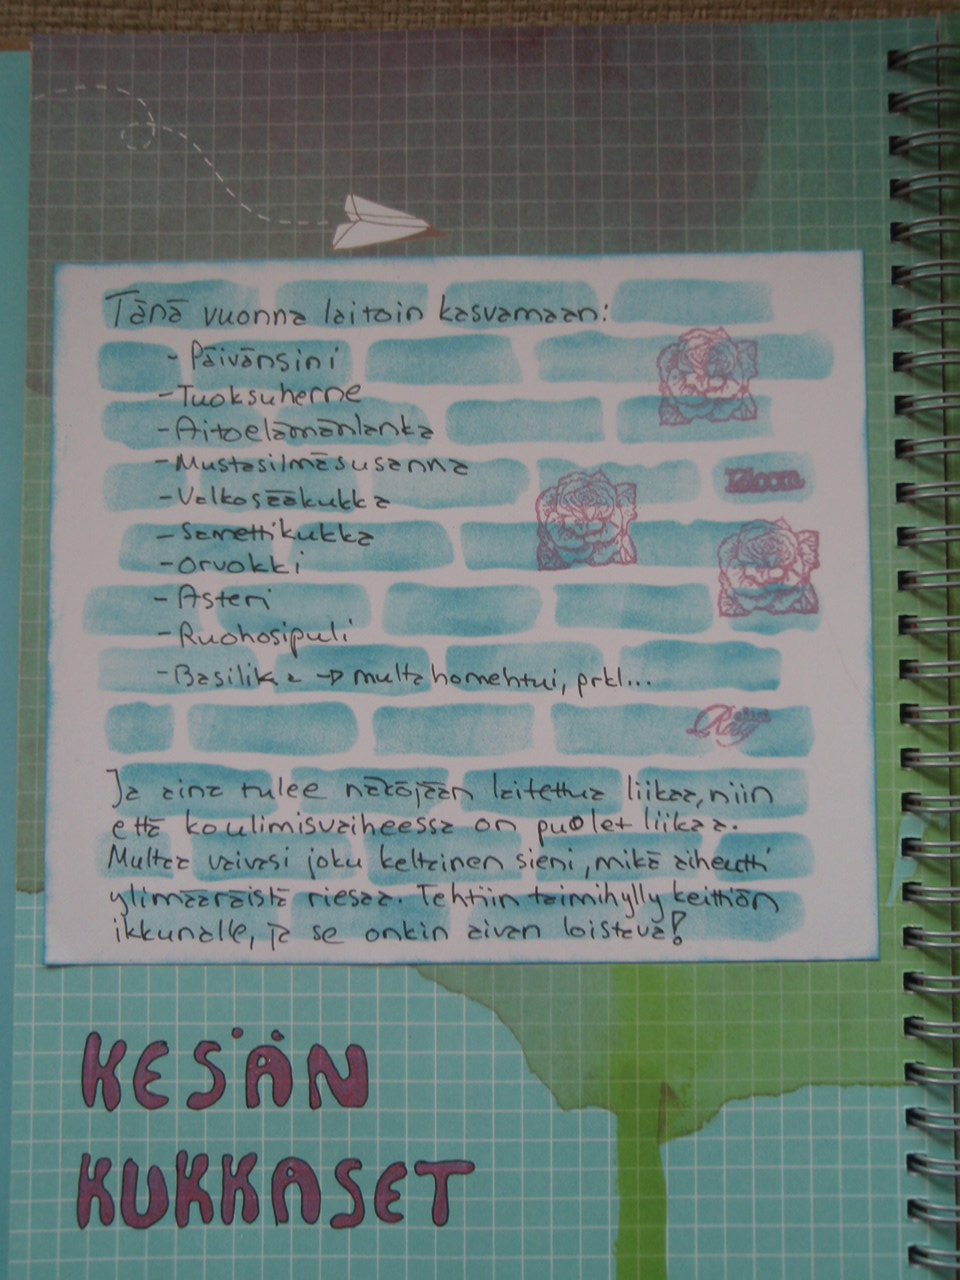 Tänä vuonna laitoin kasvamaan:
- Päivänsini
- Tuoksuherne
- Aitoelämänlanka
- Mustasilmäsusanna
- Valkosääkukka
- Samettikukka
- Orvokki
- Asteri
- Ruohosipuli
- Basilika → multa homehtui, prkl...
Bloom
Ja aina tulee näköjään laitettua liikaa, niin
että koulimisvaiheessa on puolet liikaa.
Multaa vaivasi joku keltainen sieni, mikä aiheutti
ylimääräistä riesaa. Tehtiin taimihylly keittiön
ikkunalle, ja se onkin aivan loistava!
KESÄN
KUKKASET